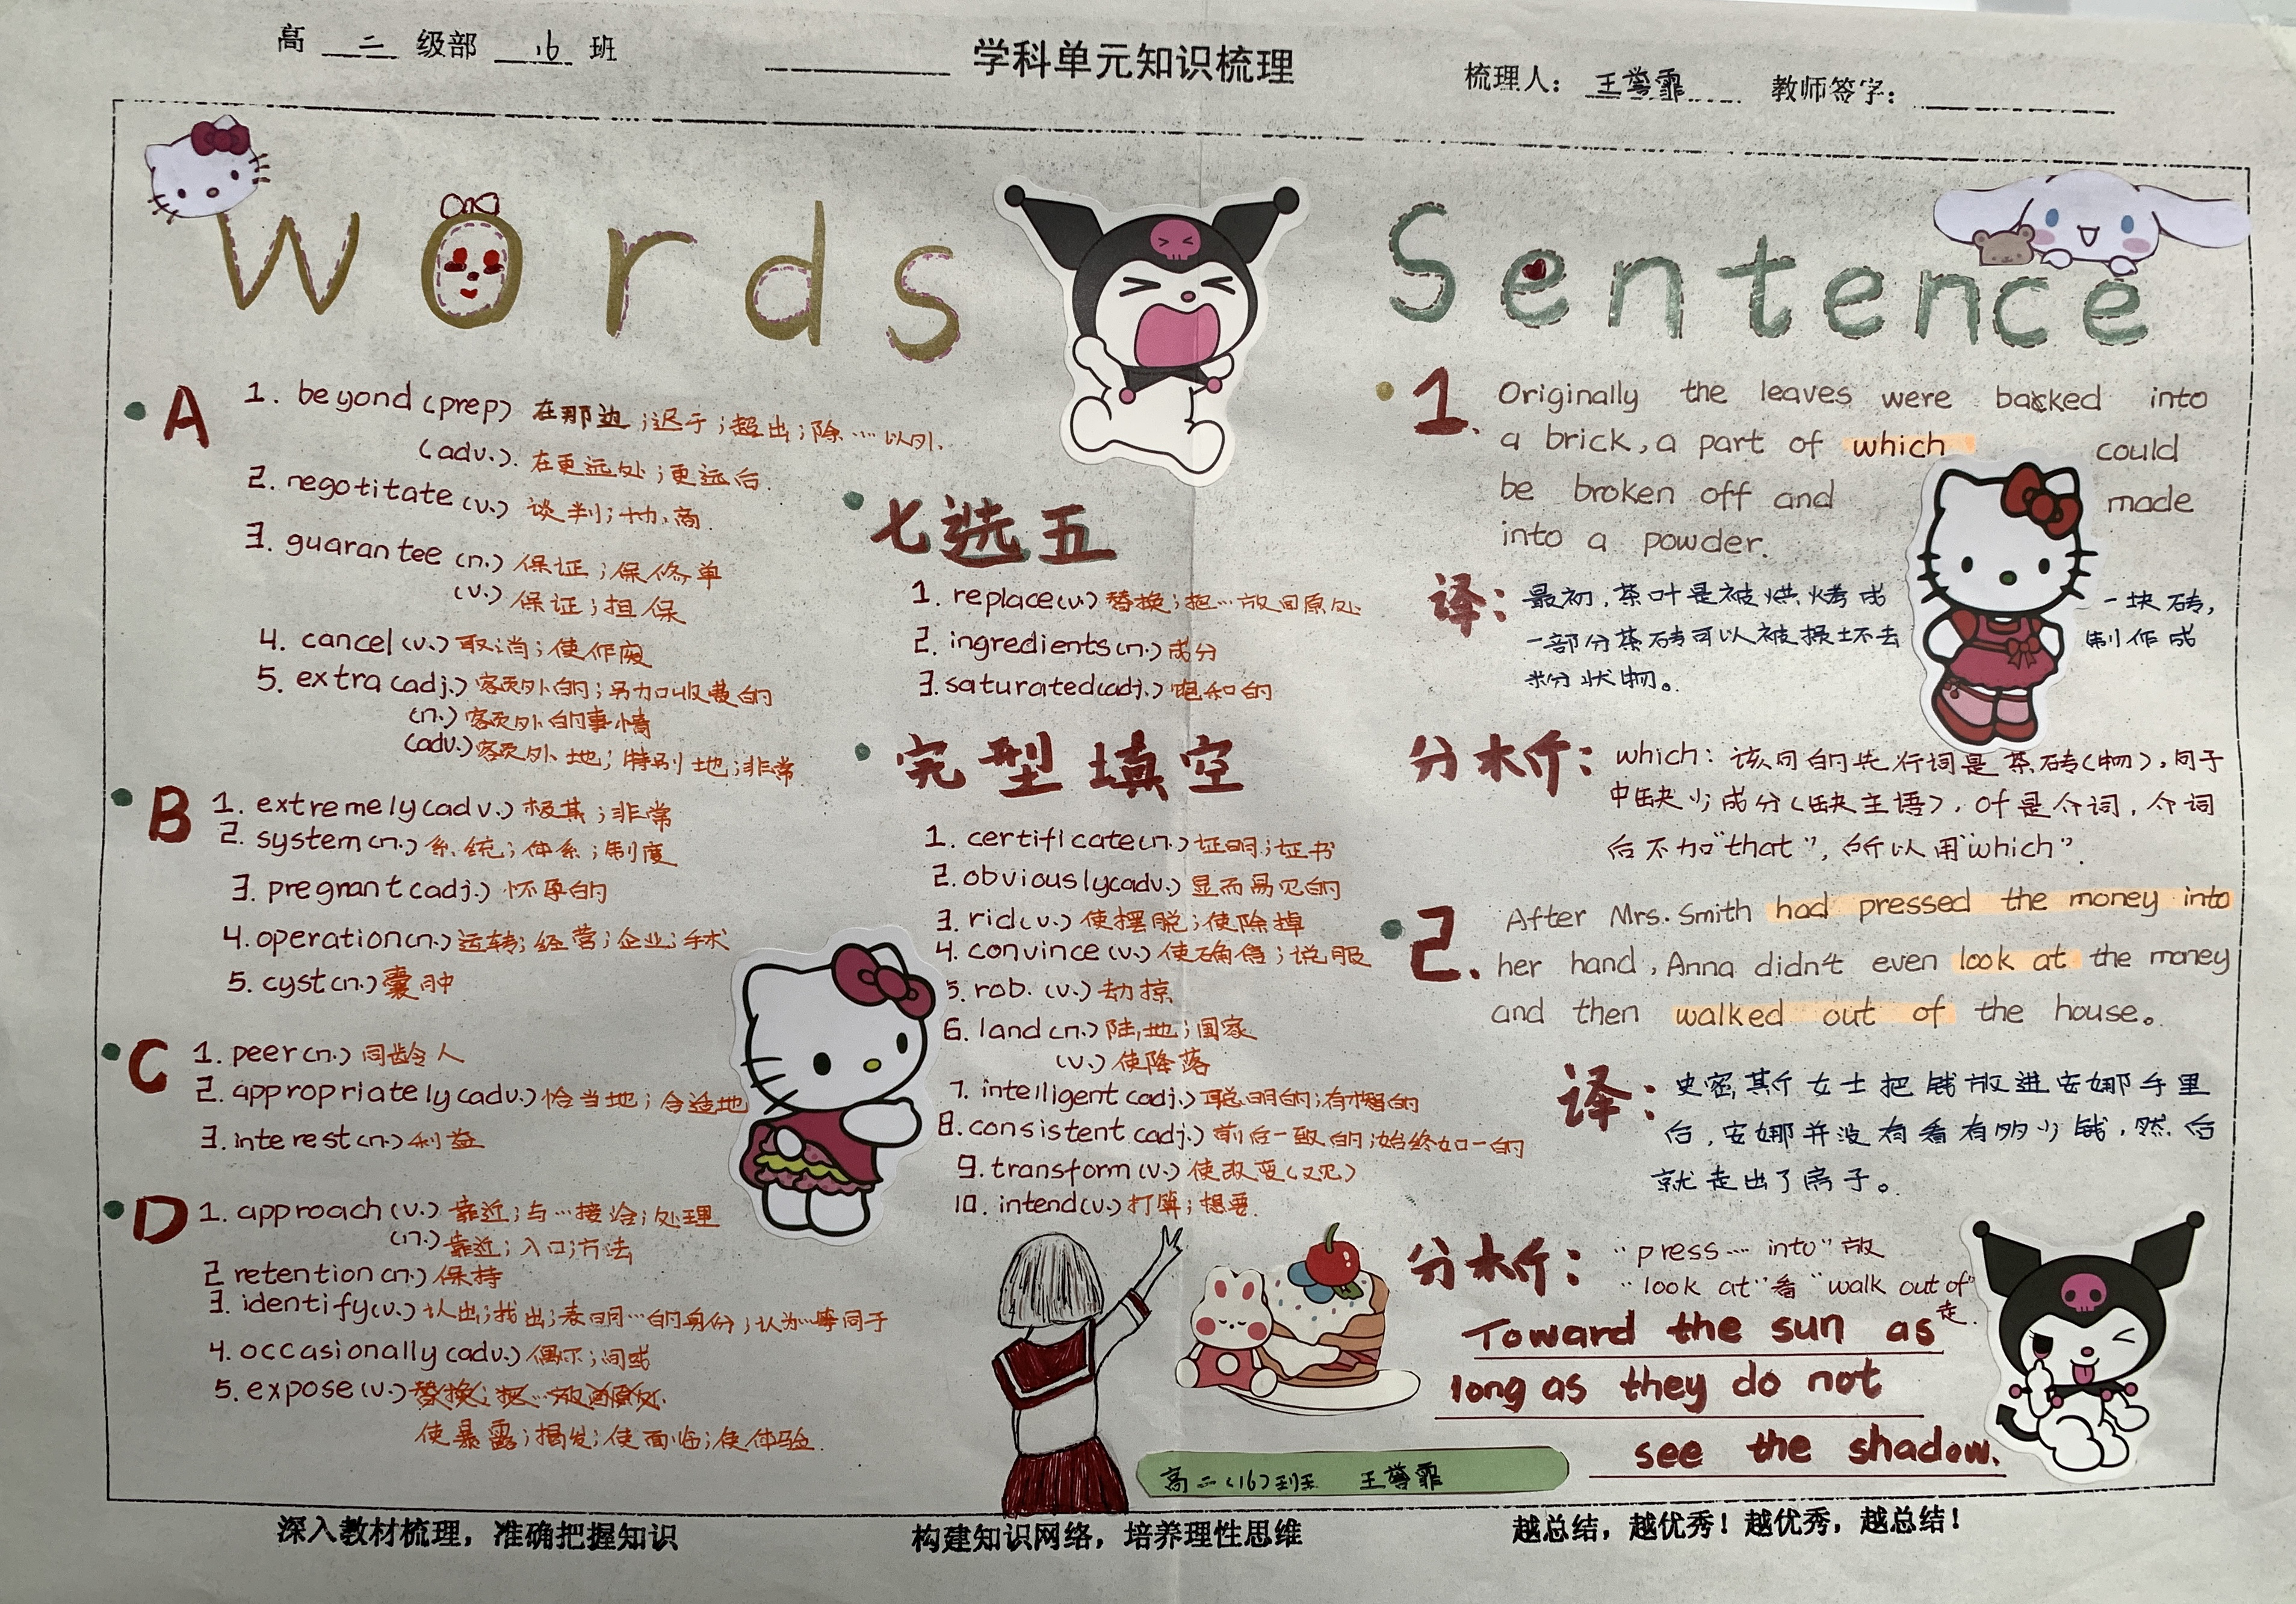 高 二 级部 16 班
学科单元知识梳理
梳理人： 王誉霏 教师签字：
Words
A
1. beyond (prep) 在那边；迟于；超出；除……以外.
(adv.). 在更远处；更远后.
2. negotitate (v.) 谈判；协商.
3. guarantee (n.) 保证；保修单
(v.) 保证；担保
4. cancel (v.) 取消；使作废
5. extra (adj.) 额外的；另加收费的
(n.) 额外的事情
(adv.) 额外地；特别地；非常
B
1. extremely (adv.) 极其；非常
2. system (n.) 系统；体系；制度
3. pregnant (adj.) 怀孕的
4. operation (n.) 运转；经营；企业；手术
5. cyst (n.) 囊肿
C
1. peer (n.) 同龄人
2. appropriately (adv.) 恰当地；合适地
3. interest (n.) 利益
D
1. approach (v.) 靠近；与…接洽；处理
(n.) 靠近；入口；方法
2 retention (n.) 保持
3. identify (v.) 认出；找出；表明…的身份；认为…等同于
4. occasionally (adv.) 偶尔；间或
5. expose (v.) 替换；把…放回原处.
使暴露；揭发；使面临；使体验.
七选五
1. replace (v.) 替换；把…放回原处
2. ingredients (n.) 成分
3. saturated (adj.) 饱和的
完型填空
1. certificate (n.) 证明；证书
2. obviously (adv.) 显而易见的
3. rid (v.) 使摆脱；使除掉
4. convince (v.) 使确信；说服
5. rob. (v.) 劫掠
6. land (n.) 陆地；国家
(v.) 使降落
7. intelligent (adj.) 聪明的；有智的
8. consistent (adj.) 前后一致的；始终如一的
9. transform (v.) 使改变（又见）
10. intend (v.) 打算；想要.
Sentence
1. Originally the leaves were backed into
a brick, a part of which could
be broken off and made
into a powder.
译： 最初，茶叶是被烘烤成一块砖，
一部分茶砖可以被损坏去制作成
粉状物。
分析： which：该词的先行词是茶砖（物），句子
中缺少成分（缺主语），of是介词，介词
后不加“that”，所以用“which”.
2. After Mrs. Smith had pressed the money into
her hand, Anna didn't even look at the money
and then walked out of the house。
译： 史密斯女士把钱放进安娜手里
后，安娜并没有看有多少钱，然后
就走出了房子。
分析： “press … into” 放
“look at” 看 “walk out of”
走.
Toward the sun as
long as they do not
see the shadow.
高二（16）班 王誉霏
深入教材梳理，准确把握知识 构建知识网络，培养理性思维 越总结，越优秀！越优秀，越总结！